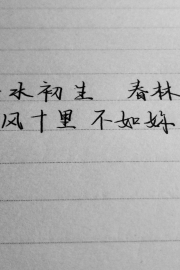 水初生 春林
风十里 不如妳